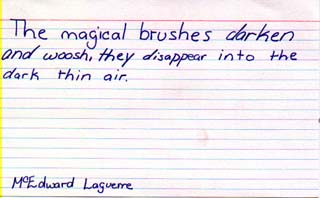 The magical brushes darken
and woosh, they disappear into the
dark thin air.
McEdward Laguerre